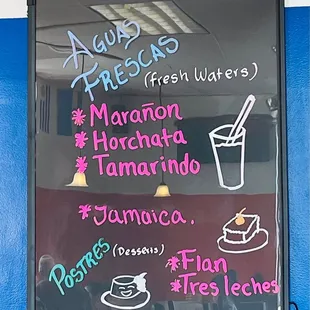 AGUAS
FRESCAS
(fresh waters)
*Marañon
*Horchata
*Tamarindo
*Jamaica.
POSTRES (Desserts)
*Flan
*Tres leches